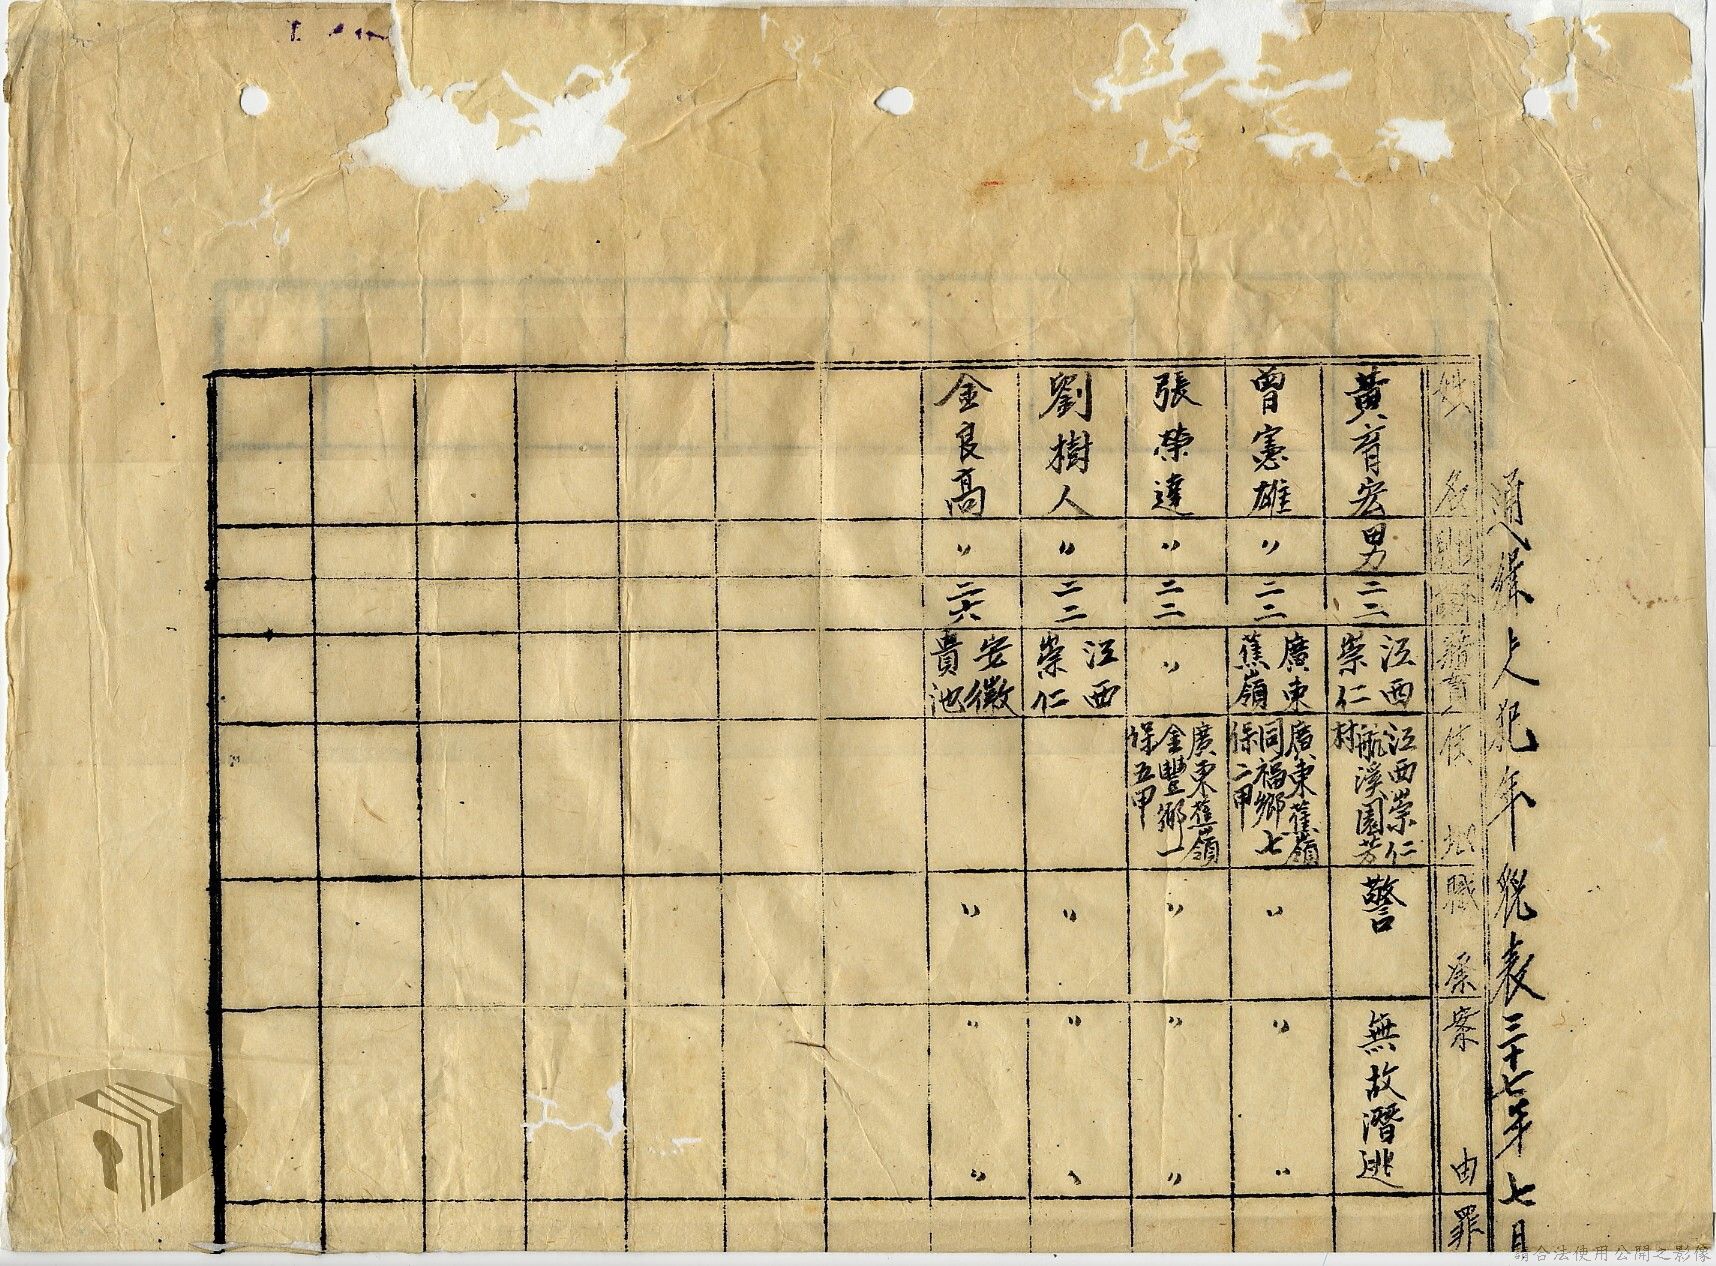 通緝人犯年貌表三十七年七月
姓名 性別 年齡 籍貫 住址 職業 案由 罪
黃育宏 男 二二 江西崇仁 江西崇仁航溪園芳村 警 無故潛逃
曾憲雄 〃 二二 廣東蕉嶺 廣東蕉嶺同福鄉七保二甲 〃 〃 〃
張榮達 〃 二二 〃 廣東蕉嶺金豐鄉一保五甲 〃 〃 〃
劉樹人 〃 二二 江西崇仁 〃 〃 〃
金良高 〃 二六 安徽貴池 〃 〃 〃
請合法使用公開之影像